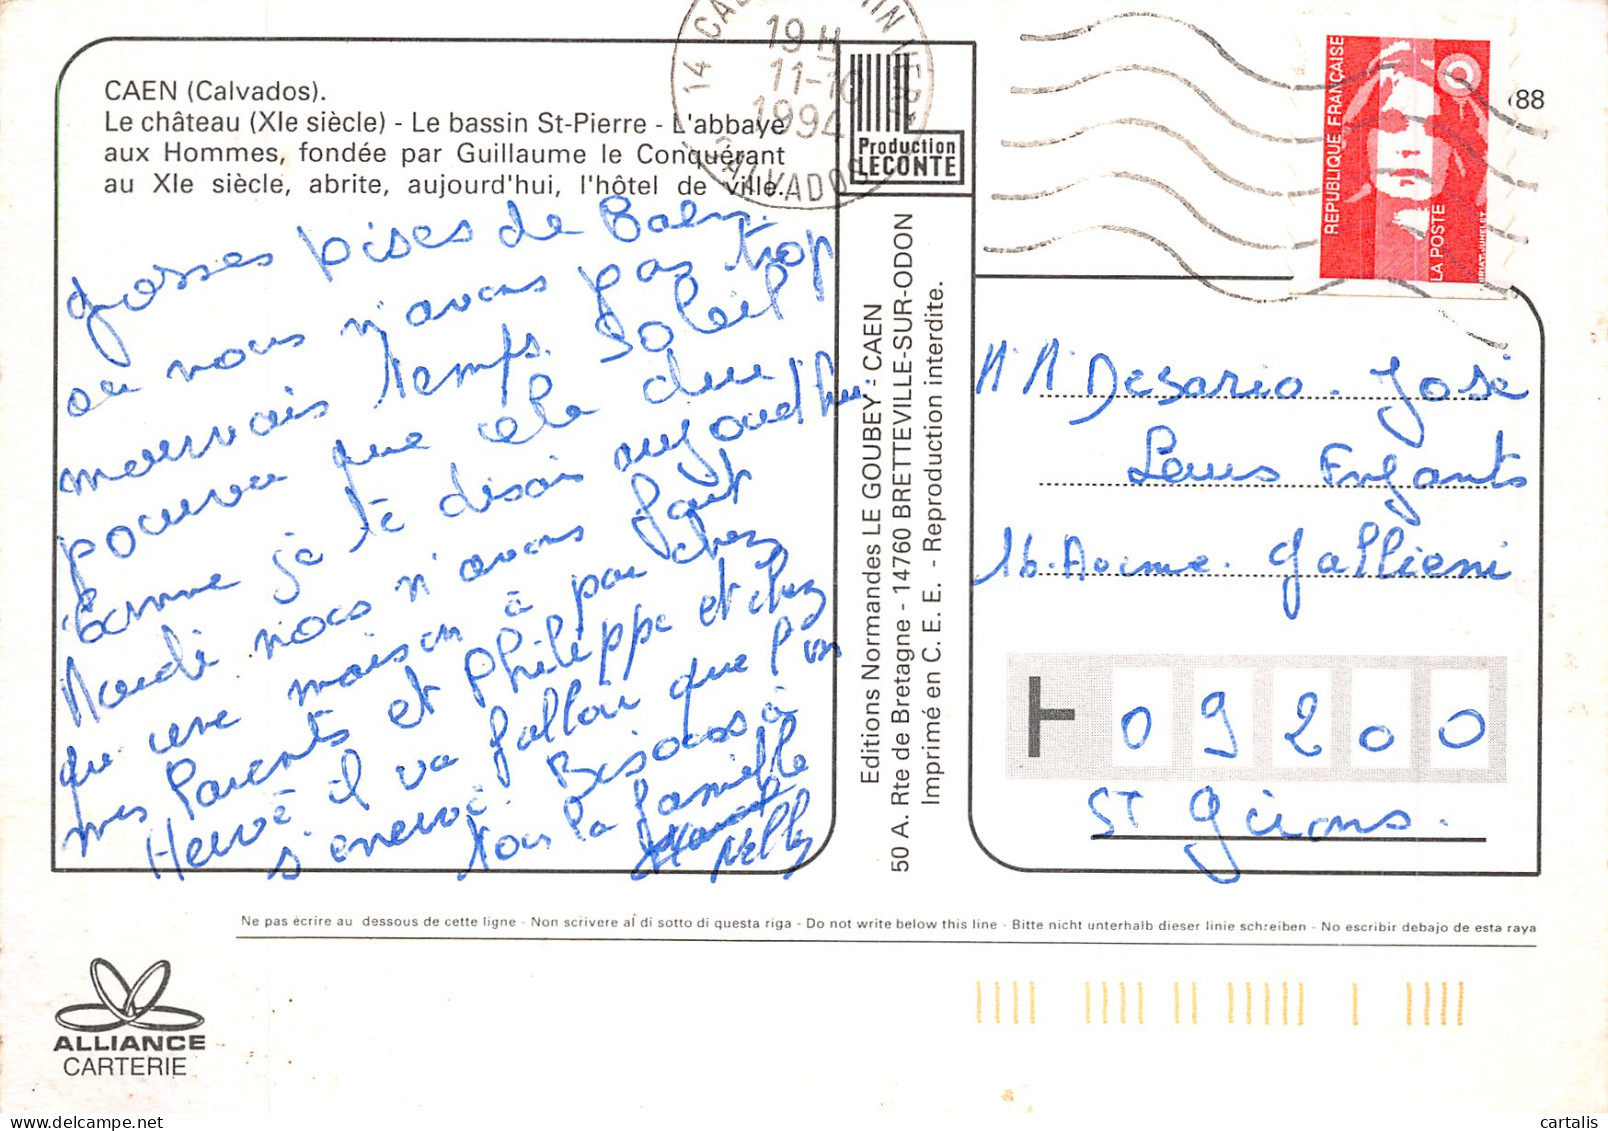 CAEN (Calvados).
Le château (XIe siècle) - Le bassin St-Pierre - L'abbaye
aux Hommes, fondée par Guillaume le Conquérant
au XIe siècle, abrite, aujourd'hui, l'hôtel de ville.
grosses bises de Caen
ou nous n'avons pas trop
mauvais temps. Soleil
pourvu que cela dure
comme je te disais aujourd'hui
Mardi nous n'avons fait
qu'une maison à par chez
mes Parents et Philippe et chez
Hervé il va falloir que l'on
s'enerve. Bisous à
tous la famille
Nelly
14 CAEN
19 H
11-10
1994
CALVADOS
Production
LECONTE
Editions Normandes LE GOUBEY - CAEN
50 A. Rte de Bretagne - 14760 BRETTEVILLE-SUR-ODON
Imprimé en C. E. E. - Reproduction interdite.
REPUBLIQUE FRANÇAISE
LA POSTE
88
M. M. Desario. José
Leurs Enfants
16. Avenue. Gallieni
09200
ST Girons.
Ne pas écrire au dessous de cette ligne - Non scrivere al di sotto di questa riga - Do not write below this line - Bitte nicht unterhalb dieser linie schreiben - No escribir debajo de esta raya
ALLIANCE
CARTERIE
cartalis